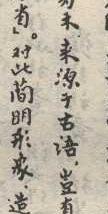 未来源于古语，岂有
”。对此简明形象 造